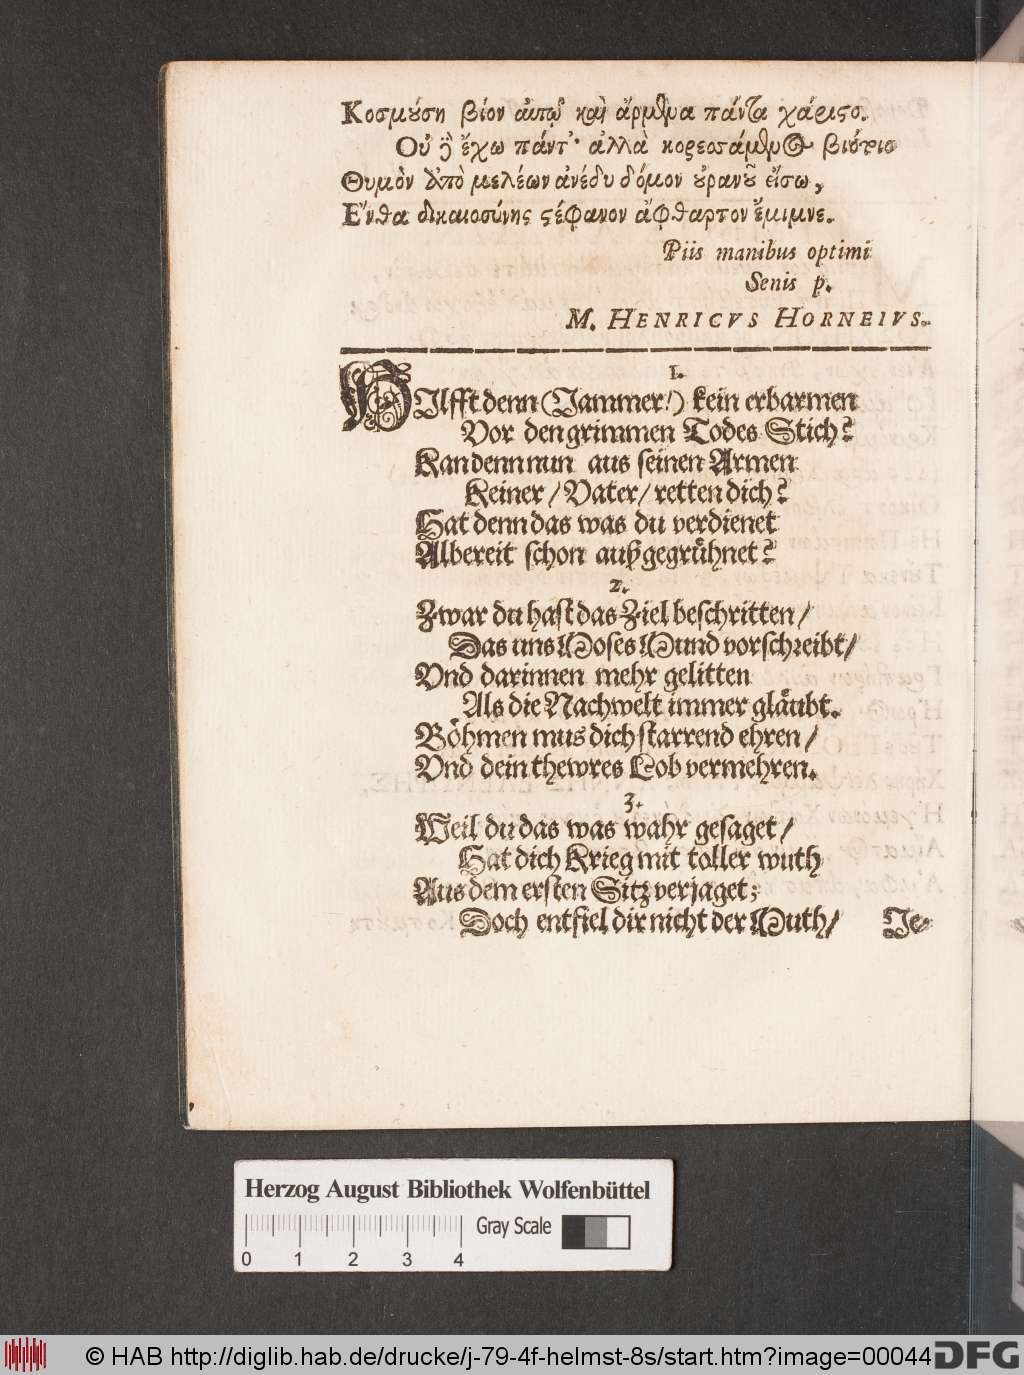 Κοσμούση βίον αὐτῷ καὶ ἄρμενα πάντα χάριςσ.
Οὐ γὰρ ἔχω πάντ' ἀλλὰ κορεσσάμενος βιότοιο
Θυμὸν ἀπὸ μελέων ἀνέδυ δόμον οὐρανοῦ εἴσω,
Ἔνθα δικαιοσύνης στέφανον ἄφθαρτον ἔμιμνε.
Piis manibus optimi
Senis p.
M. HENRICVS HORNEIVS.
1.
HIlfft denn (Jammer!) kein erbarmen
Vor den grimmen Todes Stich?
Kan denn nun aus seinen Armen
Keiner / Vater / retten dich?
Hat denn das was du verdienet
Albereit schon außgegrühnet?
2.
Zwar du hast das Ziel beschritten /
Das uns Moses Mund vorschreibt /
Vnd darinnen mehr gelitten
Als die Nachwelt immer gläubt.
Böhmen mus dich starrend ehren /
Vnd dein thewres Lob vermehren.
3.
Weil du das was wahr gesaget /
Hat dich Krieg mit toller wuth
Aus dem ersten Sitz verjaget;
Doch entfiel dir nicht der Muth /
Je-
Herzog August Bibliothek Wolfenbüttel
Gray Scale
0 1 2 3 4
© HAB http://diglib.hab.de/drucke/j-79-4f-helmst-8s/start.htm?image=00044
DFG